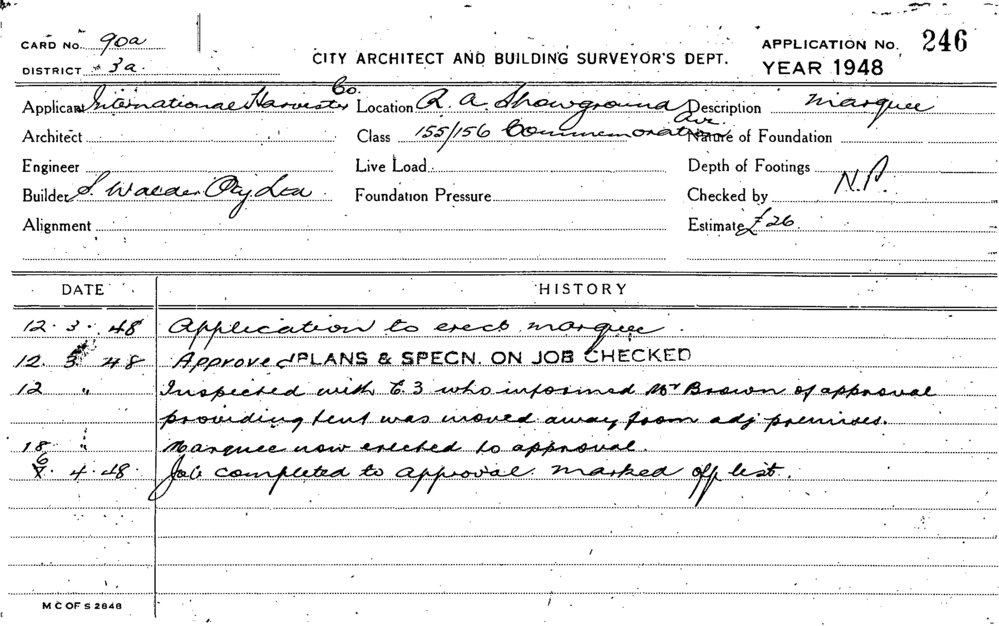 CARD No. 90a
DISTRICT 3a.
CITY ARCHITECT AND BUILDING SURVEYOR'S DEPT.
APPLICATION No. 246
YEAR 1948
Applicant International Harvester Co. Location R. A. Showground Description marquee
Architect Class 155/156 Commemorative Ave. Nature of Foundation
Engineer Live Load Depth of Footings
Builder S. Walder Pty Ltd Foundation Pressure Checked by N.P.
Alignment Estimate £26.
DATE HISTORY
12. 3. 48 Application to erect marquee.
12. 3 48 Approved PLANS & SPECN. ON JOB CHECKED
12 " Inspected with E3 who informed Mr Brown of approval
providing tent was moved away from adj premises.
18 " Marquee now erected to approval.
6. 4. 48. Job completed to approval. marked off list.
M C OF S 2848